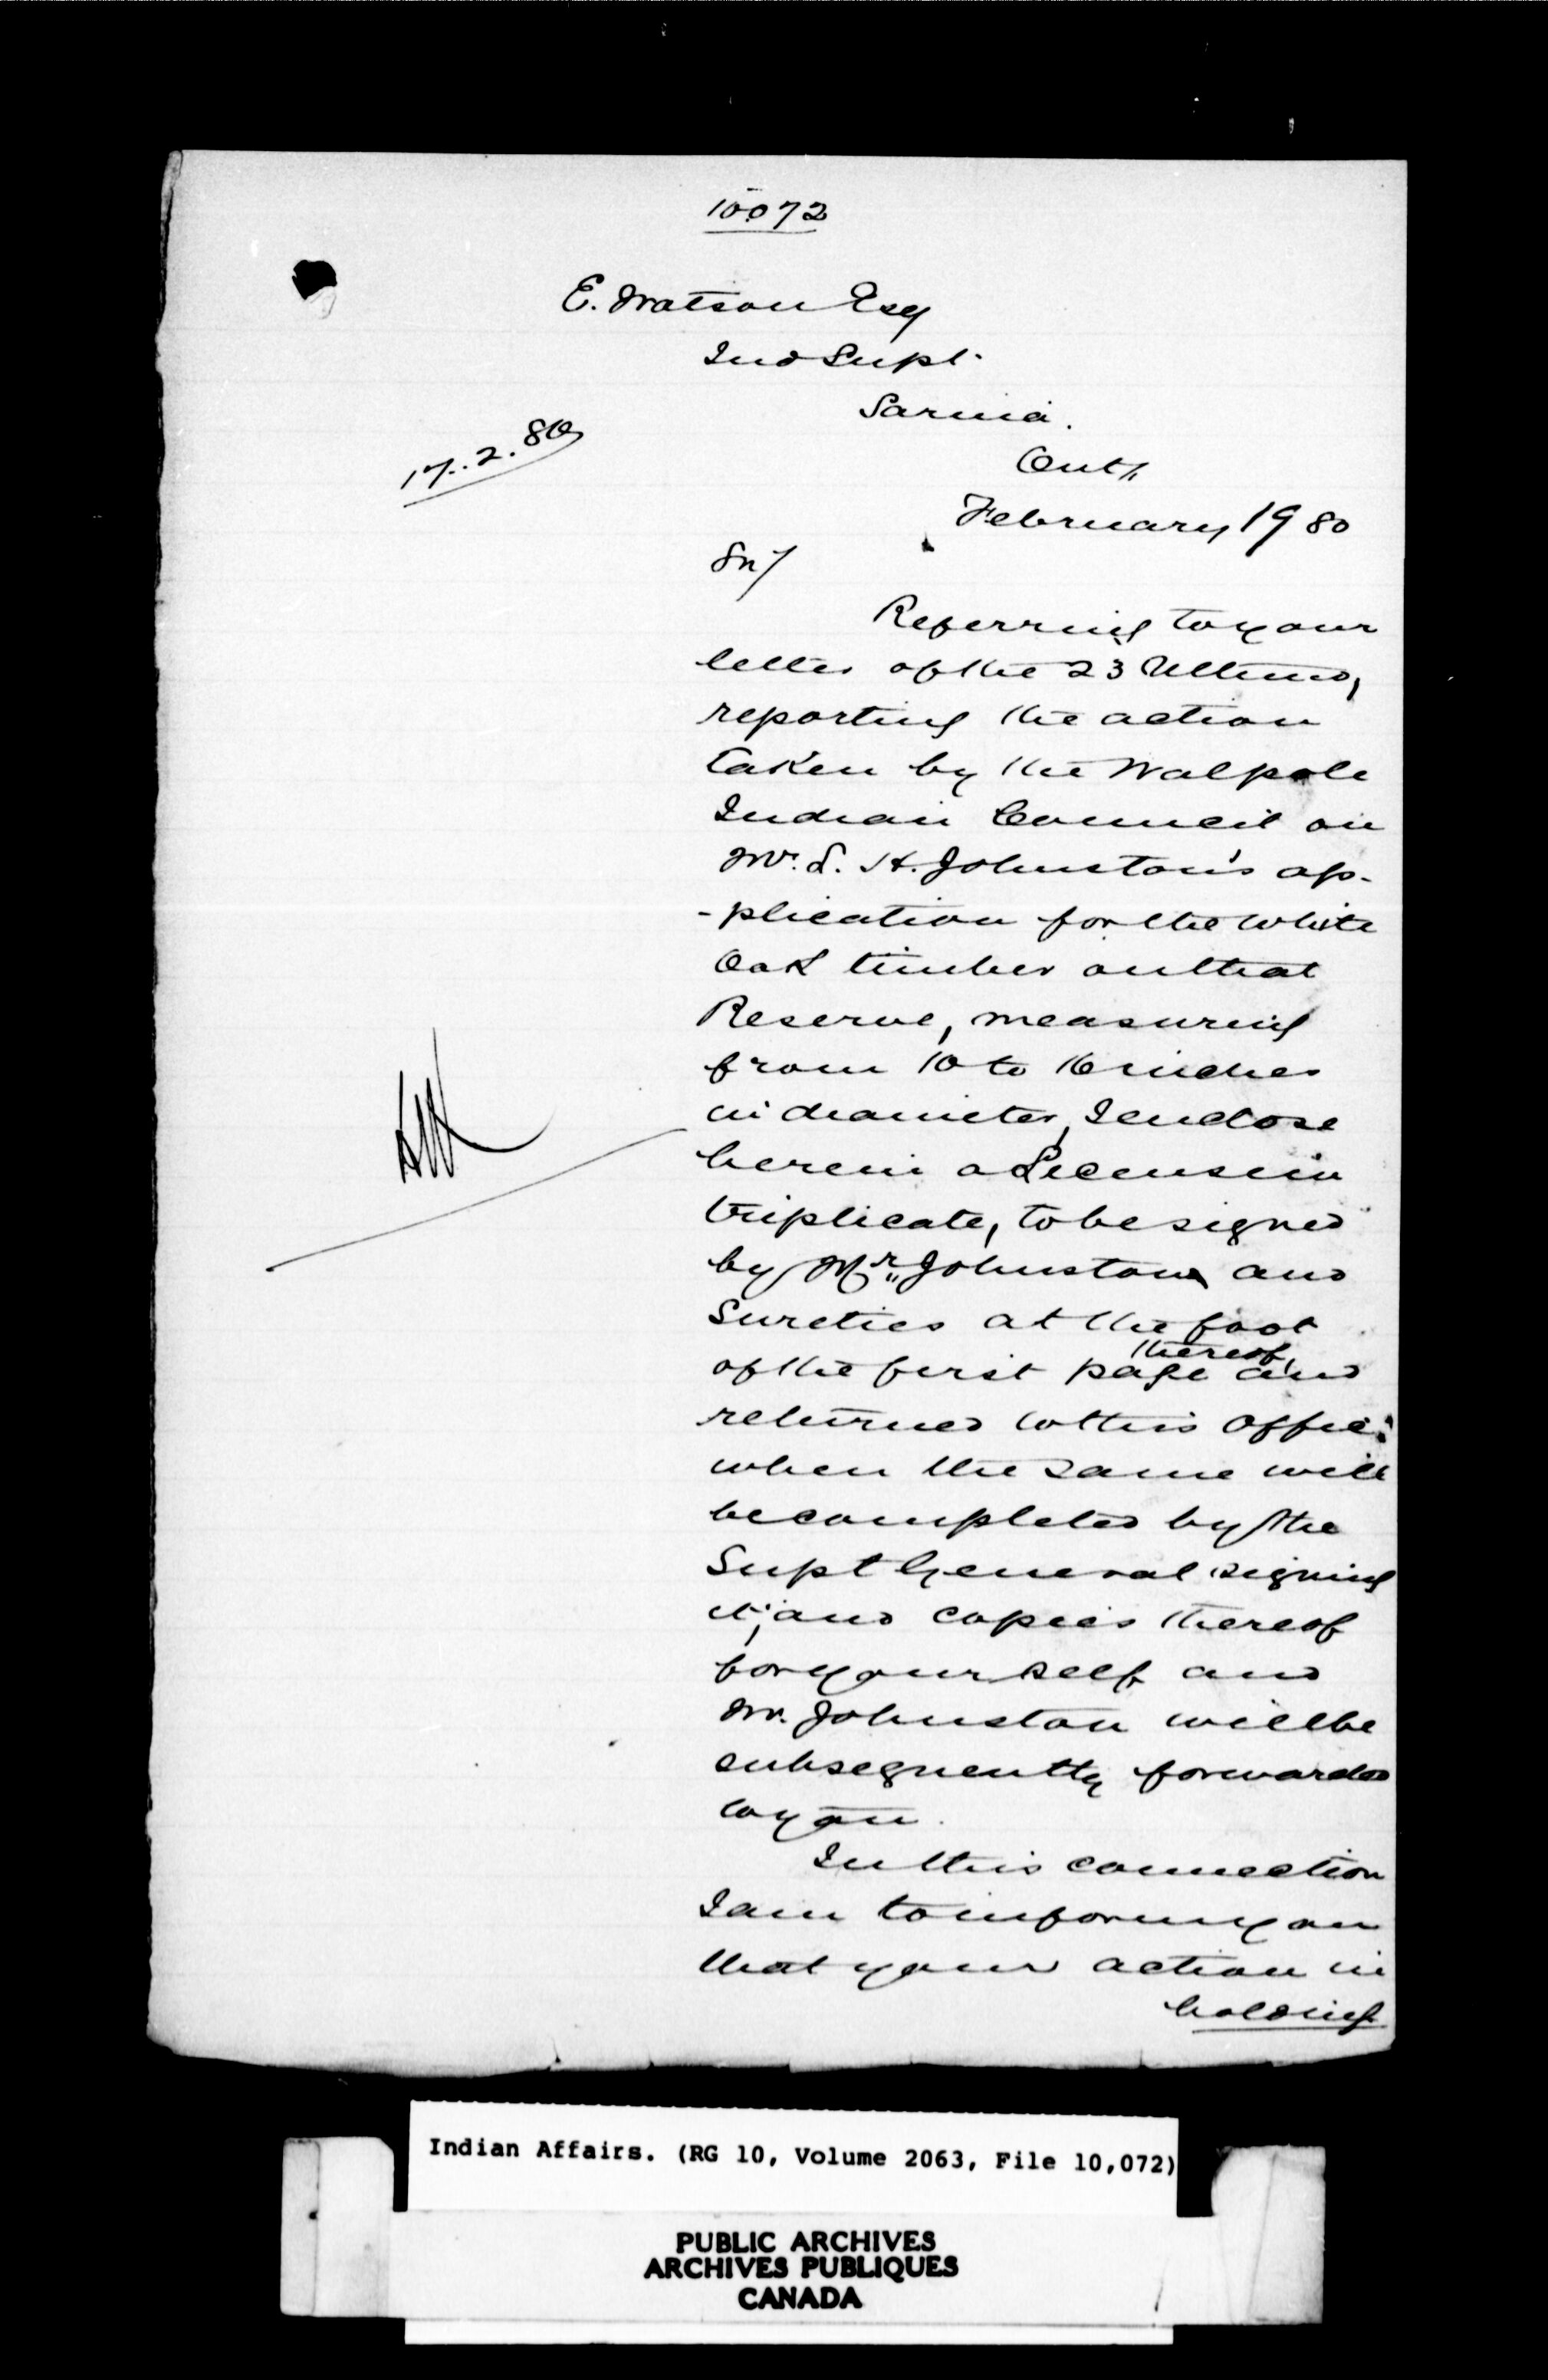 10072
E. Watson Esq
Ind Supt.
Sarnia.
Ont/.
17.2.80
February 19 80
Sir/
Referring to your
letter of the 23 Ultimo,
reporting the action
taken by the Walpole
Indian Council on
Mr. S. H. Johnston's ap-
-plication for the White
Oak timber on that
Reserve, measuring
from 10 to 16 inches
in diameter, I enclose
herein a License in
triplicate, to be signed
by Mr. Johnston and
Sureties at the foot
of the first page thereof, and
returned to this Office:
when the same will
be completed by the
Supt General signing
it; and copies thereof
for yourself and
Mr. Johnston will be
subsequently forwarded
to you.
In this connection
I am to inform you
that your action in
holding
Indian Affairs. (RG 10, Volume 2063, File 10,072)
PUBLIC ARCHIVES
ARCHIVES PUBLIQUES
CANADA